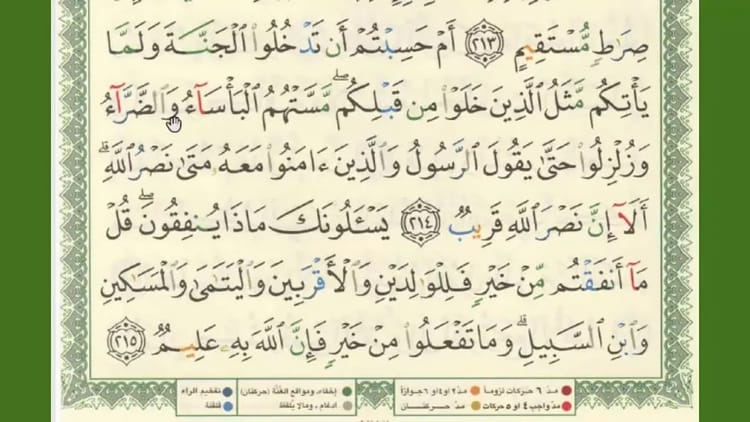 صِرَٰطٍ مُّسْتَقِيمٍ ٢١٣ أَمْ حَسِبْتُمْ أَن تَدْخُلُوا۟ ٱلْجَنَّةَ وَلَمَّا
يَأْتِكُم مَّثَلُ ٱلَّذِينَ خَلَوْا۟ مِن قَبْلِكُم ۖ مَّسَّتْهُمُ ٱلْبَأْسَآءُ وَٱلضَّرَّآءُ
وَزُلْزِلُوا۟ حَتَّىٰ يَقُولَ ٱلرَّسُولُ وَٱلَّذِينَ ءَامَنُوا۟ مَعَهُۥ مَتَىٰ نَصْرُ ٱللَّهِ ۗ
أَلَآ إِنَّ نَصْرَ ٱللَّهِ قَرِيبٌ ٢١٤ يَسْـَٔلُونَكَ مَاذَا يُنفِقُونَ ۖ قُلْ
مَآ أَنفَقْتُم مِّنْ خَيْرٍ فَلِلْوَٰلِدَيْنِ وَٱلْأَقْرَبِينَ وَٱلْيَتَٰمَىٰ وَٱلْمَسَٰكِينِ
وَٱبْنِ ٱلسَّبِيلِ ۗ وَمَا تَفْعَلُوا۟ مِنْ خَيْرٍ فَإِنَّ ٱللَّهَ بِهِۦ عَلِيمٌ ٢١٥
مدّ ٦ حركات لزوماً مدّ ٢ او ٤ او ٦ جوازاً إخفاء، ومواقع الغُنَّة (حركتان) تفخيم الراء
مدّ واجب ٤ او ٥ حركات مدّ حركتان ادغام، ومالا يُلفظ قلقلة